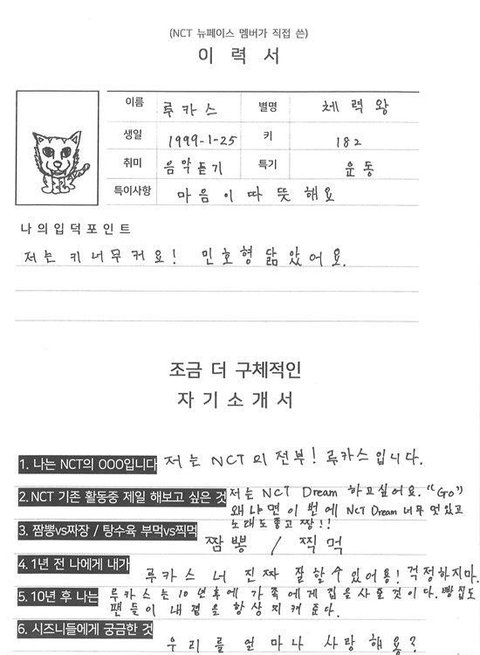 (NCT 뉴페이스 멤버가 직접 쓴)
이 력 서
이름 루카스 별명 체력왕
생일 1999-1-25 키 182
취미 음악듣기 특기 운동
특이사항 마음이 따뜻해요
나의입덕포인트
저는 키 너무 커요! 민호형 닮았어요.
조금 더 구체적인
자기소개서
1. 나는 NCT의 OOO입니다 저는 NCT의 전부! 루카스입니다.
2. NCT 기존 활동중 제일 해보고 싶은 것 저는 NCT Dream 하고싶어요. "Go"
왜냐면 이번에 NCT Dream 너무 멋있고
노래도 좋고 짱!!
3. 짬뽕vs짜장 / 탕수육 부먹vs찍먹
짬뽕 / 찍먹
4. 1년 전 나에게 내가
루카스 너 진짜 잘할 수 있어용! 걱정하지마.
5. 10년 후 나는 루카스는 10년후에 가족에게 집을 사줄것이다.
팬들이 내 곁을 항상 지켜준다.
6. 시즈니들에게 궁금한 것
우리를 얼마나 사랑해용?